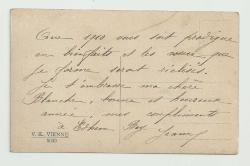 Que 1910 vous soit prodigue
en bienfaits et les vœux que
je forme seront réalisés.
Je t'embrasse ma chère
Blanche, bonne et heureuse
année, mes compliments
à Bey
V. K. VIENNE